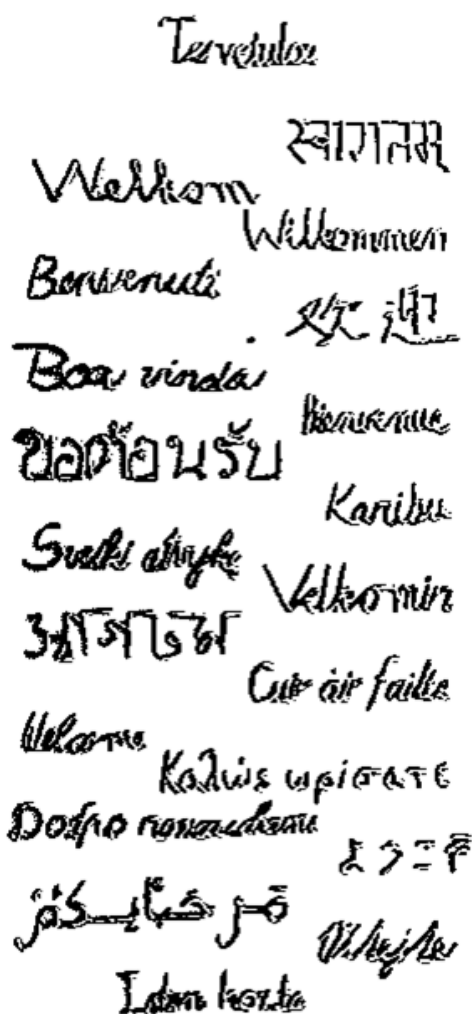 Tervetuloa
स्वागतम्
Welkom
Willkommen
Benvenuti
欢迎
Boa vinda
Bienvenue
ขอต้อนรับ
Karibu
Sveiki atvykę
Velkomin
Cuir air failte
Welcome
Καλώς ωρίσατε
Добро
ようこそ
Vítejte